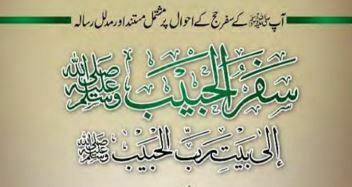 آپ ﷺ کے سفرِ حج کے احوال پر مشتمل مستند اور مدلل رسالہ
سفر الحبیب ﷺ
إلی بیتِ ربِّ الحبیب ﷺ